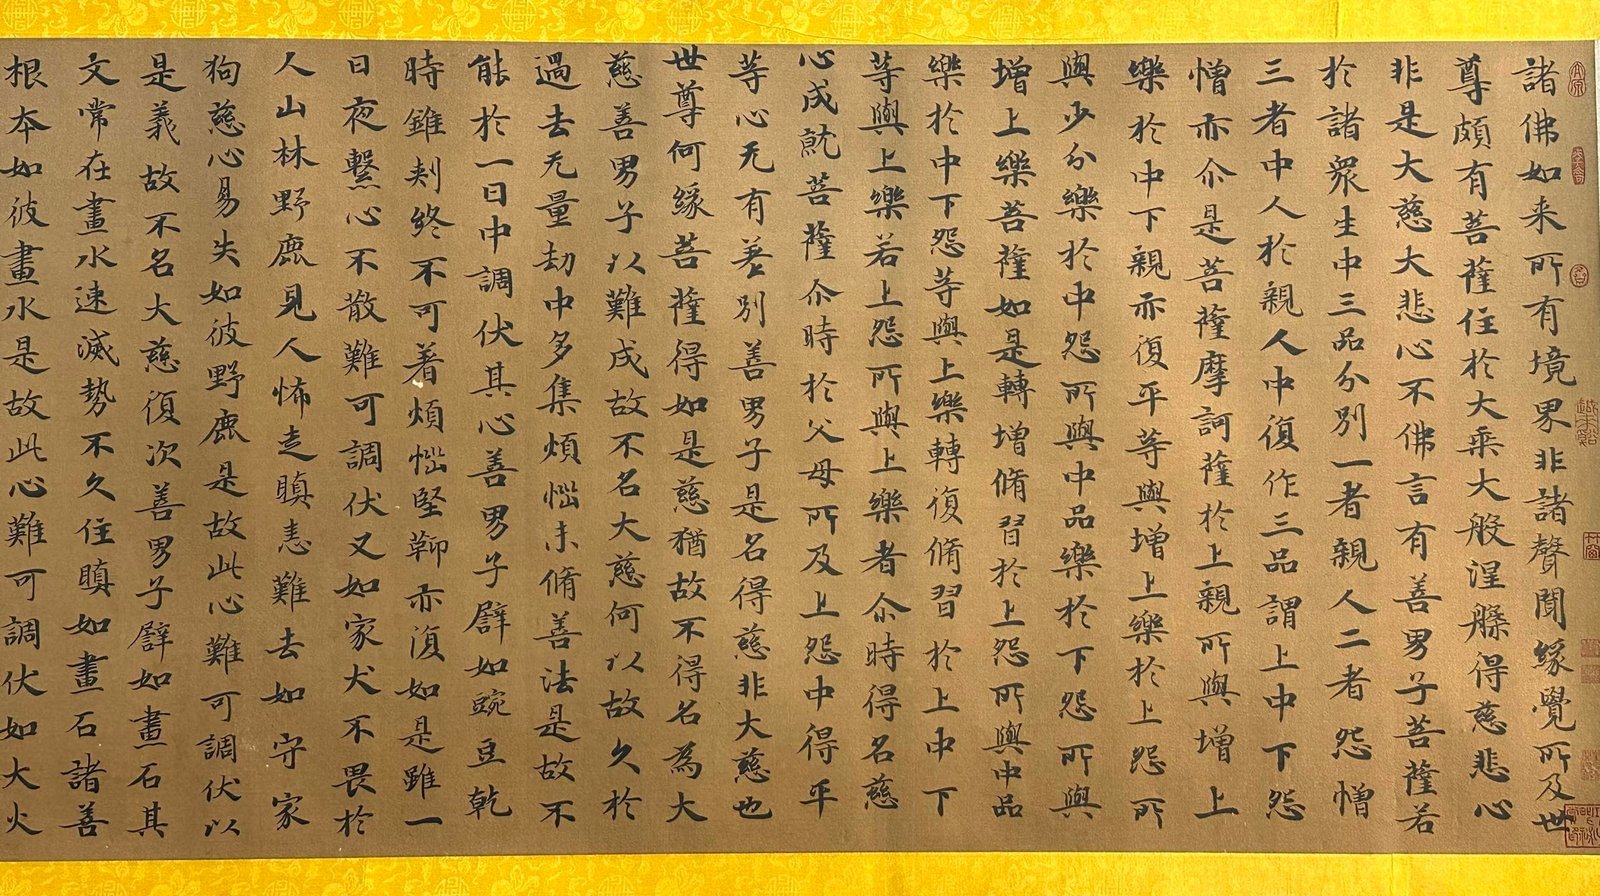 諸佛如来所有境界非諸聲聞緣覺所及世
尊頗有菩薩住於大乘大般涅槃得慈悲心
非是大慈大悲心不佛言有善男子菩薩若
於諸眾生中三品分別一者親人二者怨憎
三者中人於親人中復作三品謂上中下怨
憎亦尒是菩薩摩訶薩於上親所與增上
樂於中下親亦復平等與增上樂於上怨所
與少分樂於中怨所與中品樂於下怨所與
增上樂菩薩如是轉增脩習於上怨所與中品
樂於中下怨等與上樂轉復脩習於上中下
等與上樂若上怨所與上樂者尒時得名慈
心成就菩薩尒時於父母所及上怨中得平
等心无有差別善男子是名得慈非大慈也
世尊何緣菩薩得如是慈猶故不得名為大
慈善男子以難成故不名大慈何以故久於
過去无量劫中多集煩惱未脩善法是故不
能於一日中調伏其心善男子譬如豌豆乾
時錐刾終不可著煩惱堅鞕亦復如是雖一
日夜繫心不散難可調伏又如家犬不畏於
人山林野鹿見人怖走瞋恚難去如守家
狗慈心易失如彼野鹿是故此心難可調伏以
是義故不名大慈復次善男子譬如畫石其
文常在畫水速滅勢不久住瞋如畫石諸善
根本如彼畫水是故此心難可調伏如大火